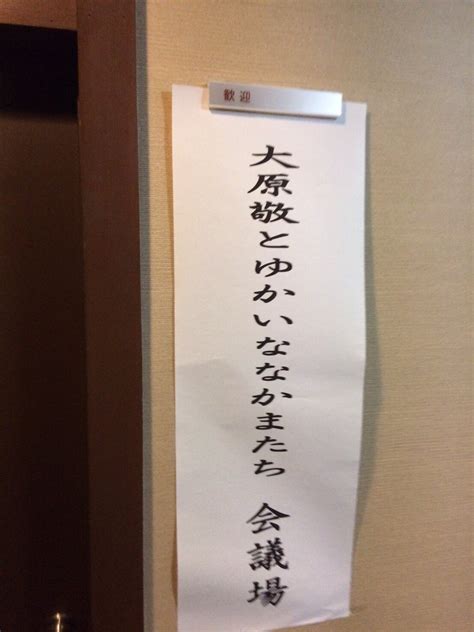 歓迎
大原敬とゆかいななかまたち 会議場